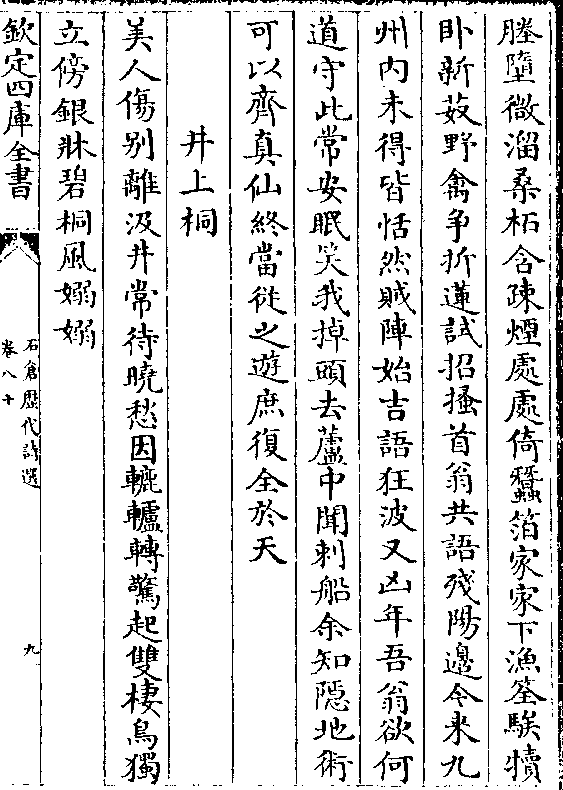 塍墮微溜桑柘含疎煙處處倚蠶箔家家下漁筌騃犢
臥新茭野禽争折蓮試招搔首翁共語殘陽邊今来九
州内未得皆恬然賊陣始吉語狂波又凶年吾翁欲何
道守此常安眠笑我掉頭去蘆中聞刺船余知隠地術
可以齊真仙終當従之遊庶復全於天
井上桐
美人傷别離汲井常待曉愁因轆轤轉驚起雙棲鳥獨
立傍銀牀碧桐風嫋嫋
欽定四庫全書
石倉歴代詩選
卷八十
九